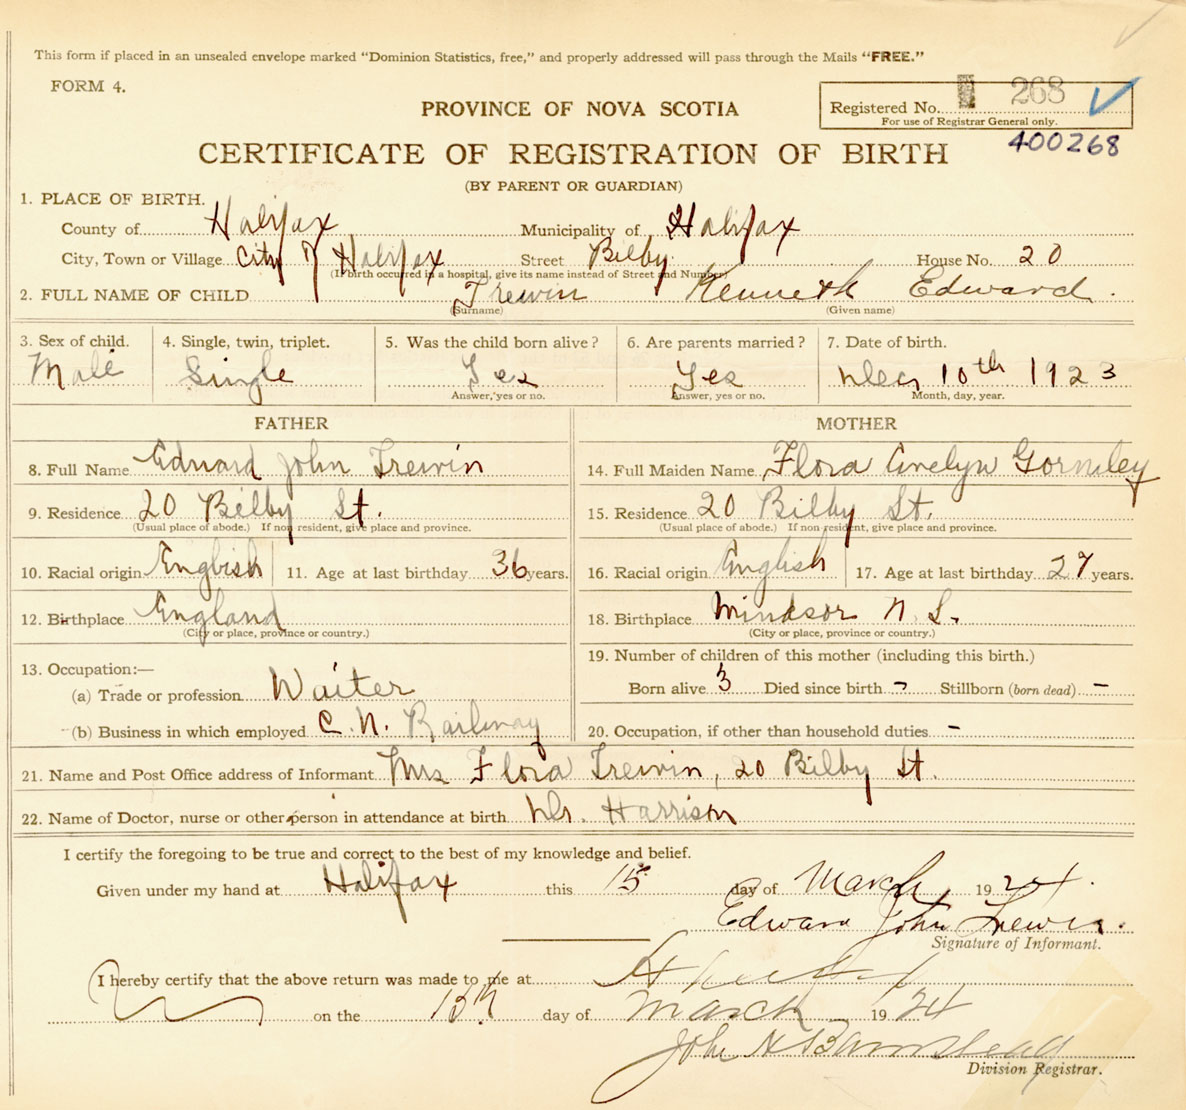 This form if placed in an unsealed envelope marked "Dominion Statistics, free," and properly addressed will pass through the Mails "FREE."
FORM 4.
Registered No. 268
For use of Registrar General only.
PROVINCE OF NOVA SCOTIA
400268
CERTIFICATE OF REGISTRATION OF BIRTH
(BY PARENT OR GUARDIAN)
1. PLACE OF BIRTH.
County of Halifax Municipality of Halifax
City, Town or Village City of Halifax Street Bilby House No. 20
(If birth occurred in a hospital, give its name instead of Street and Number)
2. FULL NAME OF CHILD Trewin Kenneth Edward.
(Surname) (Given name)
3. Sex of child. 4. Single, twin, triplet. 5. Was the child born alive? 6. Are parents married? 7. Date of birth.
Male Single Yes Yes Dec 10th 1923
Answer, yes or no. Answer, yes or no. Month, day, year.
FATHER MOTHER
8. Full Name Edward John Trewin 14. Full Maiden Name Flora Evelyn Gormley
9. Residence 20 Bilby St. 15. Residence 20 Bilby St.
(Usual place of abode.) If non resident, give place and province. (Usual place of abode.) If non resident, give place and province.
10. Racial origin English 11. Age at last birthday 36 years. 16. Racial origin English 17. Age at last birthday 27 years.
12. Birthplace England 18. Birthplace Windsor N.S.
(City or place, province or country.) (City or place, province or country.)
13. Occupation:— 19. Number of children of this mother (including this birth.)
(a) Trade or profession Waiter Born alive 3 Died since birth - Stillborn (born dead) -
(b) Business in which employed C.N. Railway 20. Occupation, if other than household duties -
21. Name and Post Office address of Informant Mrs Flora Trewin, 20 Bilby St.
22. Name of Doctor, nurse or other person in attendance at birth Dr. Harrison
I certify the foregoing to be true and correct to the best of my knowledge and belief.
Given under my hand at Halifax this 15 day of March 1924.
Edward John Trewin.
Signature of Informant.
I hereby certify that the above return was made to me at
on the 15th day of March 1924
John H Barnstead
Division Registrar.